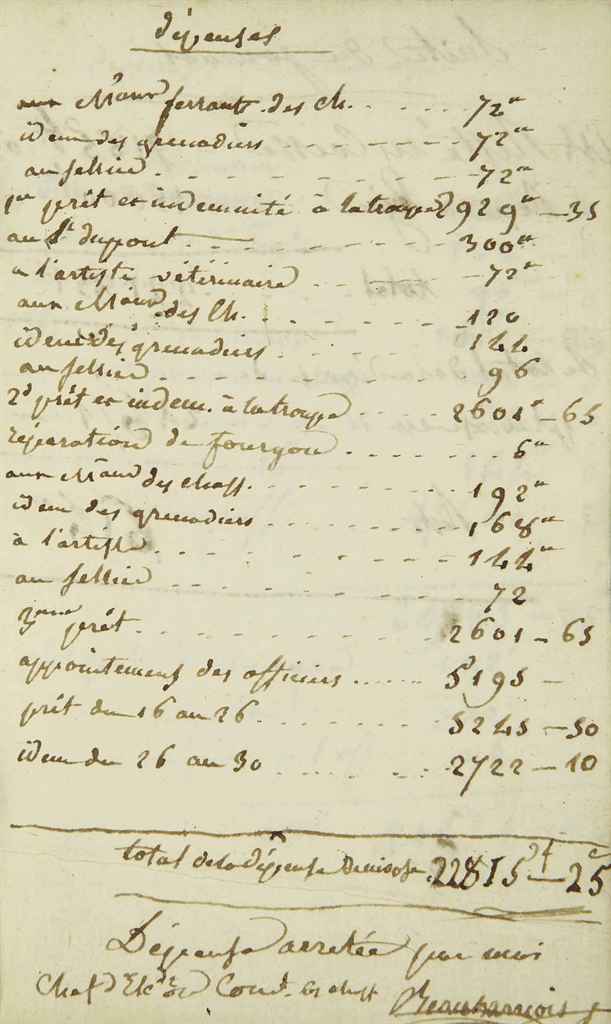 dépenses
aux M.aux ferrant des Ch. 72"
idem des grenadiers 72"
au sellier 72"
1er prêt et indemnité à la troupe 2929" — 35
au Sr dupont 300"
a l'artiste vétérinaire 72"
aux M.aux des Ch. 120
idem des grenadiers 144
au sellier 96
2d prêt et indem. à la troupe 2601" — 65
réparation du fourgon 6"
aux M.aux des chass. 192"
idem des grenadiers 168"
à l'artiste 144"
au sellier 72
3eme prêt 2601 — 65
appointements des officiers 5195 —
prêt du 16 au 26 5245 — 50
idem du 26 au 30 2722 — 10
total de la dépense 22815 — 25
Dépense arretée par moi
Chef d'Esc.dron Com.d les chass
Beauharnois